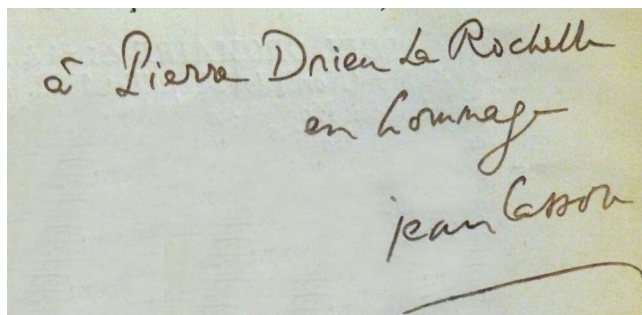 à Pierre Drieu La Rochelle
en hommage
jean Cassou